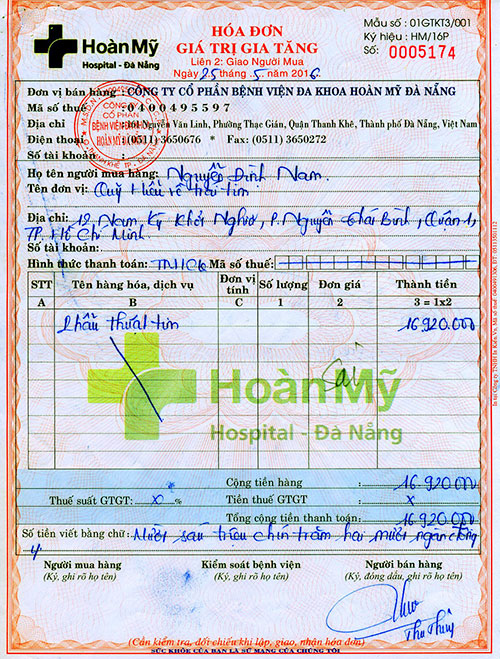 HoànMỹ
Hospital - Đà Nẵng
HÓA ĐƠN
GIÁ TRỊ GIA TĂNG
Liên 2: Giao Người Mua
Ngày 25 tháng 5 năm 2016
Mẫu số : 01GTKT3/001
Ký hiệu : HM/16P
Số: 0005174
Đơn vị bán hàng : CÔNG TY CỔ PHẦN BỆNH VIỆN ĐA KHOA HOÀN MỸ ĐÀ NẴNG
Mã số thuế : 0400495597
Địa chỉ : 161 Nguyễn Văn Linh, Phường Thạc Gián, Quận Thanh Khê, Thành phố Đà Nẵng, Việt Nam
Điện thoại : (0511) 3650676 * Fax: (0511) 3650272
Số tài khoản :
CÔNG TY
CỔ PHẦN
BỆNH VIỆN
HOÀN MỸ
Họ tên người mua hàng: Nguyễn Đình Nam.
Tên đơn vị: Quỹ Phẫu về trái tim
Địa chỉ: 12 Nam Kỳ Khởi Nghĩa, P. Nguyễn Thái Bình, Quận 1,
TP. Hồ Chí Minh.
Số tài khoản:
Hình thức thanh toán: TM/CK Mã số thuế:
STT Tên hàng hóa, dịch vụ Đơn vị tính Số lượng Đơn giá Thành tiền
A B C 1 2 3 = 1x2
Phẫu thuật tim 16.920.000
HoànMỹ
Hospital - Đà Nẵng
Cộng tiền hàng 16.920.000
Thuế suất GTGT: x % Tiền thuế GTGT : x
Tổng cộng tiền thanh toán: 16.920.000
Số tiền viết bằng chữ: Mười sáu triệu chín trăm hai mươi ngàn đồng
Người mua hàng Kiểm soát bệnh viện Người bán hàng
(Ký, ghi rõ họ tên) (Ký, ghi rõ họ tên) (Ký, đóng dấu, ghi rõ họ tên)
Thu Thủy
(Cần kiểm tra, đối chiếu khi lập, giao, nhận hóa đơn)
SỨC KHỎE CỦA BẠN LÀ SỨ MẠNG CỦA CHÚNG TÔI